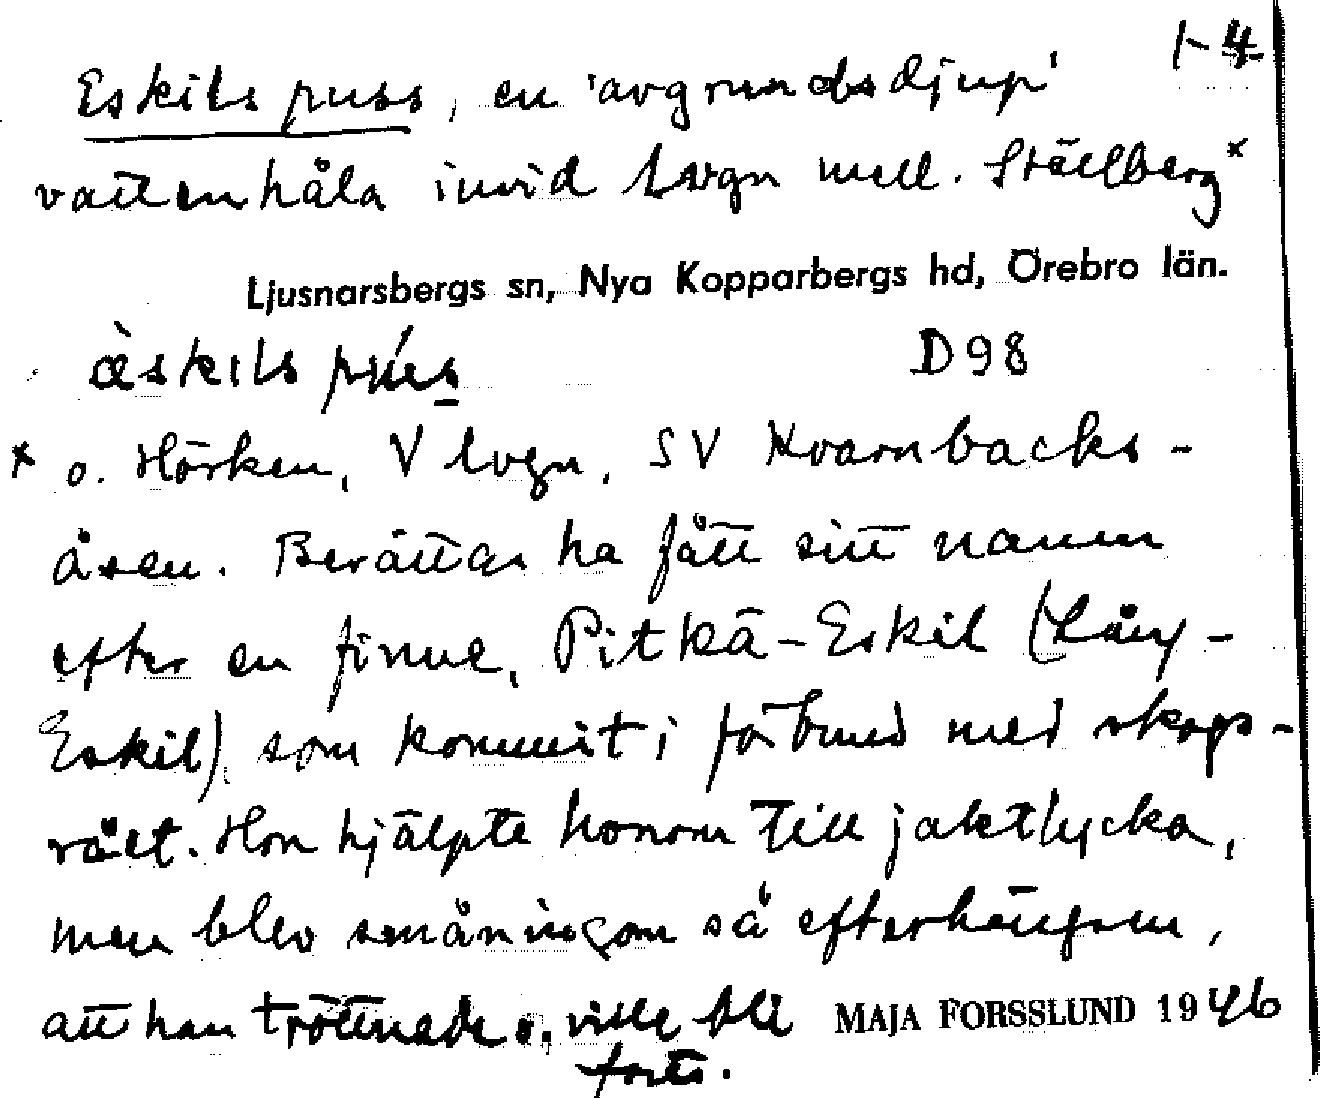 1-4
Eskils puss, en 'avgrundsdjup'
vattenhåla invid lvgn mell. Ställberg*
Ljusnarsbergs sn, Nya Kopparbergs hd, Örebro län.
æ̀skils pús D98
* o. Hörken, V lvgn, SV Kvarnbacks-
åsen. Berättas ha fått sitt namn
efter en finne, Pitkä-Eskil (Lång-
Eskil), som kommit i förbund med skogs-
rået. Hon hjälpte honom till jaktlycka,
men blev småningom så efterhängsen,
att han tröttnade o. ville bli MAJA FORSSLUND 1946
forts.